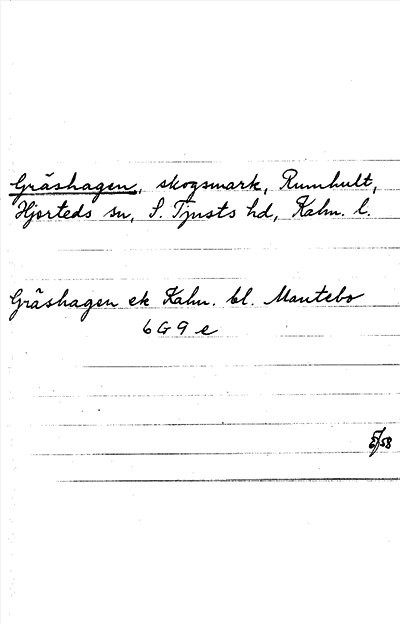 Gräshagen, skogsmark, Rumhult,
Hjorteds sn, S. Tjusts hd, Kalm. l.
Gräshagen ek Kalm. bl. Mantebo
6 G 9 e
/58